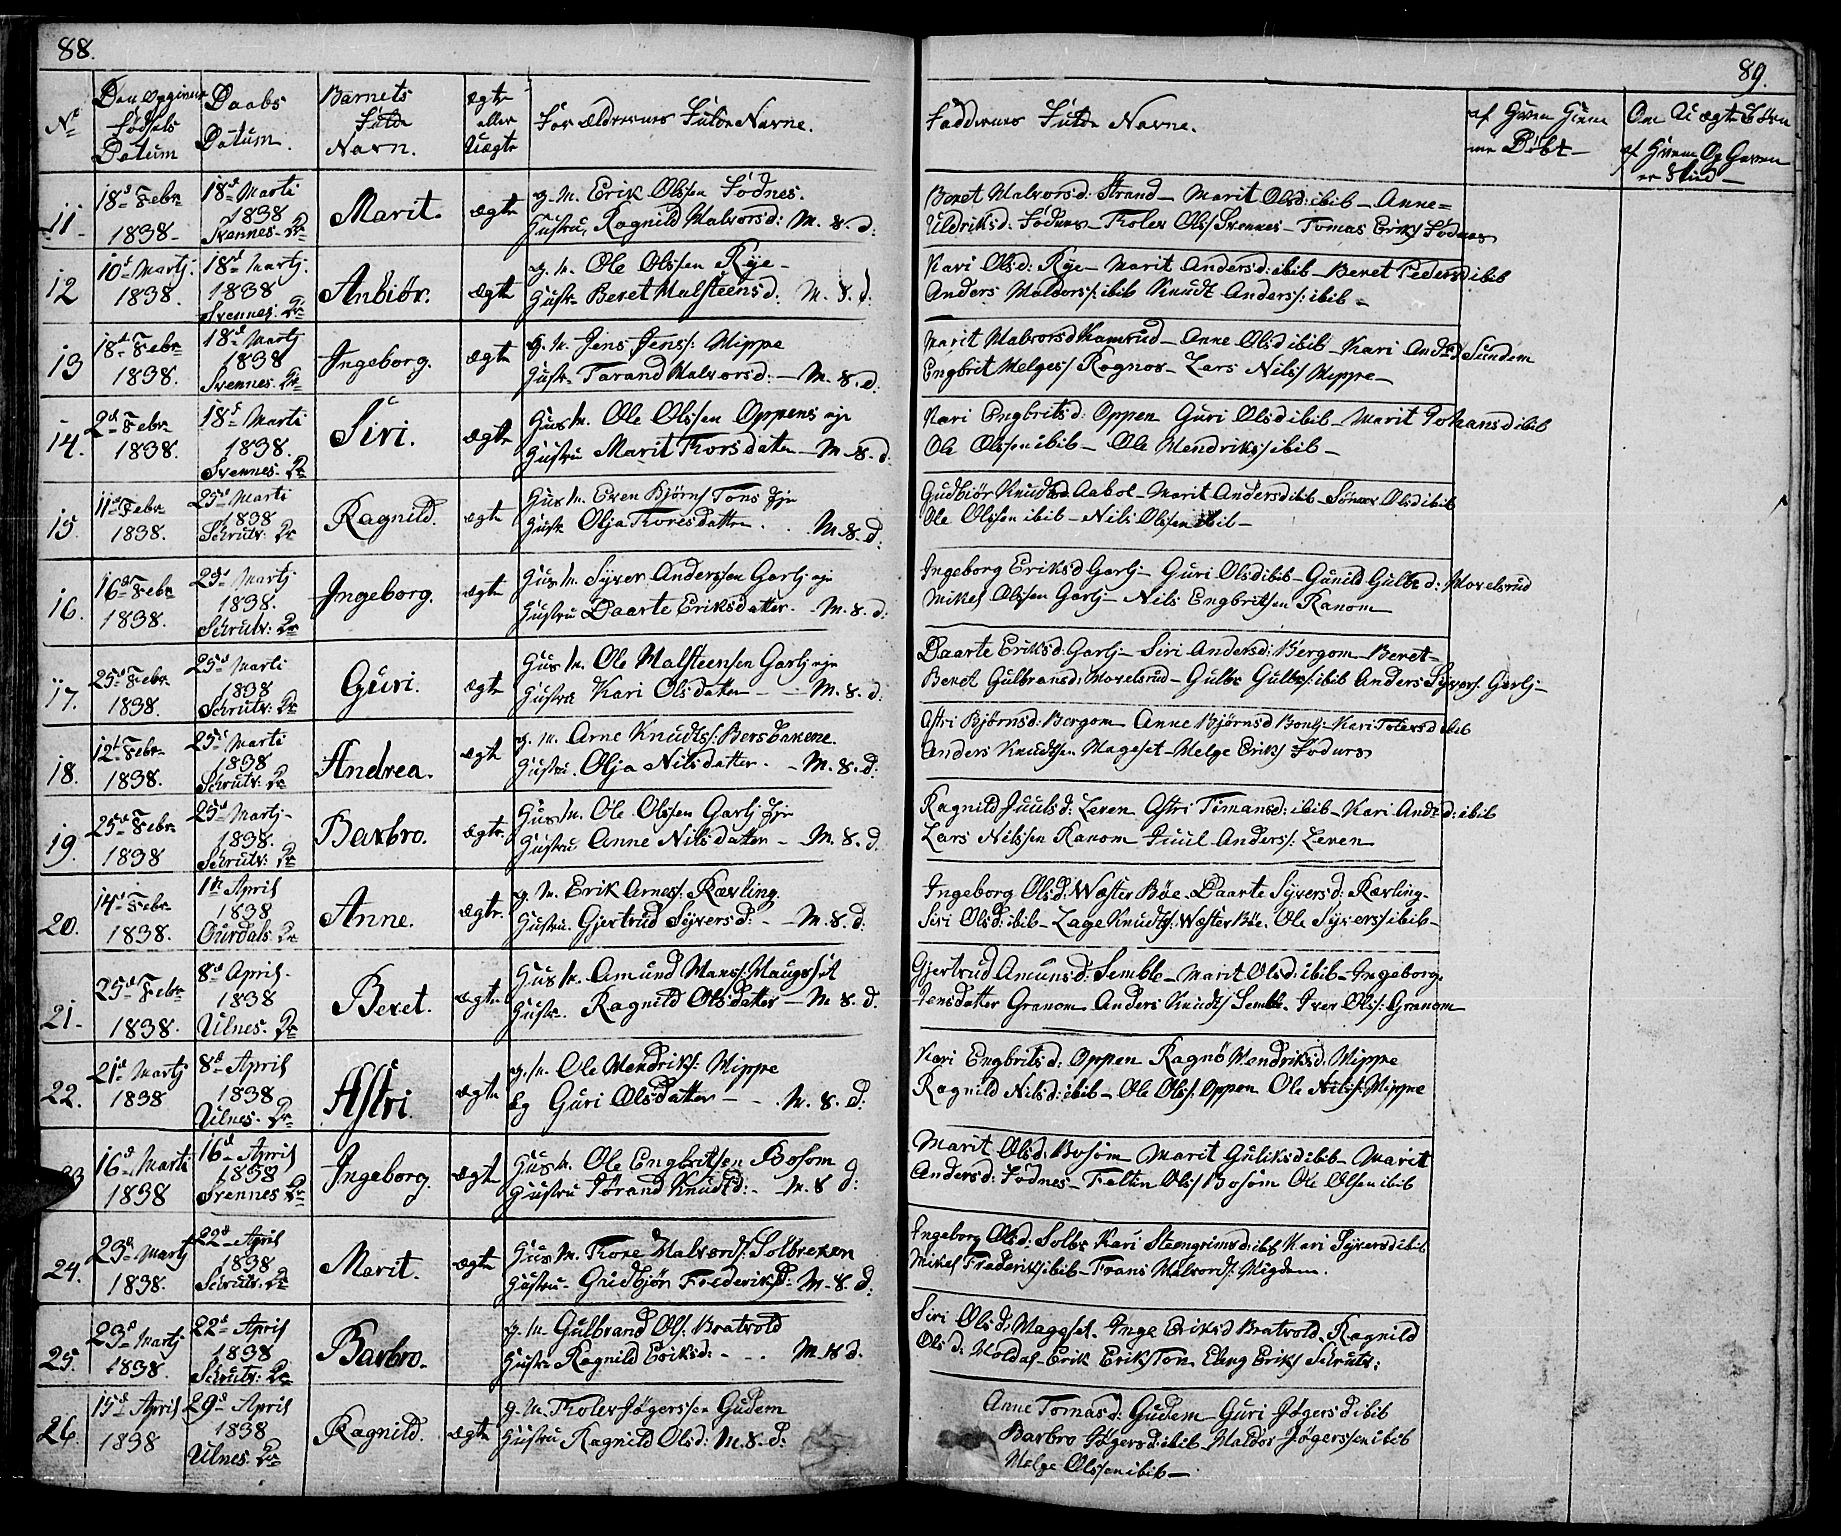 88.
Nr
Den opgivne Fødsels Datum
Daabs Datum.
Barnets Fulde Navn.
ægte eller Uægte
Forældrenes Fulde Navne.
11
18d Febr 1838
18d Marti 1838 Svennes. K
Marit.
ægte
g. M. Erik Olssen Fødnes.
Hustru, Ragnild Halvorsd: M. 8. d:
12
10d Martj. 1838.
18d Martj. 1838 Svennes: K
Anbiør.
ægte
g. M. Ole Olssen Rye
Hustr. Beret Halsteensd. M. 8. d:
13
18d Febr 1838.
18d Martj 1838 Svennes. K
Ingeborg.
ægte
g. M. Jens Jens/: Hippe
Hustr. Tarand Halvorsd: M. 8. d:
14.
2d Febr 1838.
18d Marti 1838. Svennes. K
Siri.
ægte
Huus M. Ole Olssen Oppens eje
Hustru Marit Thorsdatter M. 8. d:
15.
11d Febr. 1838.
25d Marti 1838 Schrutv: K
Ragnild.
ægte
Huus M. Even Bjørns/ Tons Eje
Hustr Olja Thoresdatter. M. 8. d:
16.
16d Febr 1838.
25d Martj 1838. Schrutv: K
Ingeborg.
ægte
Huus M. Syver Anderssen Garlj eje
Hustru Daarte Eriksdatter. M. 8. d:
17.
25d Febr. 1838.
25d Marti 1838 Schrutv: K
Guri.
ægte
Huus M. Ole Halsteensen Garlj eje
Hustru Kari Olsdatter M. 8. d:
18.
12d Febr. 1838.
25d Marti 1838 Schrutv: K
Andrea.
ægte
g. M. Arne Knudts/: Bersbakene.
Hustru. Olja Nilsdatter. M. 8. d:
19.
25d Febr 1838
25d Martj 1838. Schrutv: K
Barbro.
ægte.
Huus M. Ole Olssen Garlj Eje
Hustru Anne Nilsdatter M. 8. d.
20.
14d Febr. 1838.
1te April 1838 Ourdals K
Anne.
ægte.
g. M. Erik Arnes/. Kærling.
Hustru. Gjertrud Syversd: M. 8. d:
21.
25d Febr 1838.
8d April. 1838 Ulnes. K
Beret.
ægte
Huus M. Amund Hans/: Haugsæt
Hustr. Ragnild Olsdatter M. 8. d.
22.
21d Martj 1838
8d April 1838. Ulnes. K
Astri.
ægte
g. M. Ole Hendriks/: Hippe
Eg Guri Olsdatter M. 8. d:
16d Marti 1838
16d April 1838 Svennes K
Ingeborg.
ægte
Huus M. Ole Engbritsen Bosom
Hustru Jørand Knudtd: M. 8 d:
24.
23d Martj 1838.
22d April 1838 Schrutv. K
Marit.
ægte
Huus M. Thore Halvords/: Solbrekken
Hustru. Gudbjør Frederiksd: M. 8. d:
25.
23d Martj 1838.
22d April 1838 Schrutv. K
Barbro.
g. M. Gulbrand Ols/: Bratvold
Hustru Ragnild Eriksd: M. 8 d.
26.
15d April 1838
29d April 1838 Ulnes. K
Ragnild.
ægte
g. M. Tholev Jøgerssen Gudem
Hustru Ragnild Olsd: M. 8. d:
89.
Faddernes Fulde Navne.
af Hvem Hjemme Døbt
Om Uægte Børn af Hvem Og Hvem er Skud
Beret Halvorsd: Strand Marit Olsd: ibib Anne
Uldriksd: Fødnes Tholev Ols/ Svennes Tomas Eriks/ Fødnes
Kari Olsd: Rye Marit Andersd: ibib Beret Pedersd ibib
Anders Haldors/: ibib Knudt Anders/: ibib
Marit Halvorsd Kamrud Anne Olsd ibib Kari Andsd Sundem
Engbrit Helges/ Rognos Lars Nils/ Hippe
Kari Engbritsd: Oppen Guri Olsd ibib Marit Johansd ibib
Ole Olssen ibib Ole Hendriks/ ibib
Gudbiør Knudtsd. Aabol Marit Andersd ibib Sønnev Olsd ibib
Ole Olssen ibib Nils Olssen ibib
Ingeborg Eriksd Garlj Guri Olsd ibib Gunild Gulbr d: Moxelsrud
Mikel Olssen Garlj Nils Engbritsen Ranom
Daarte Eriksd: Garlj Siri Andersd: Bergom Beret
Beret Gulbransd: Moxelsrud Gulbr Gulbr/: ibib Anders Syvers/. Garlj
Astri Bjørnsd: Bergom Anne Bjørnsd Bonlj Kari Tolevsd ibib
Anders Knudtsen Hageset Helge Eriks/ Fødnes
Ragnild Juulsd: Leren Astri Timansd: ibib Kari Andr d: ibib
Lars Nilssen Ranom Juul Anders/: Leren
Ingeborg Olsd: Wæster Bøe Daarte Syversd: Kærling.
Siri Olsd: ibib Lage Knudts/: Wæster Bøe. Ole Syvers/ ibib
Gjertrud Amunsd: Semble Marit Olsd: ibib Ingeborg
Jensdatter Granom Anders Knudts/ Semble. Iver Ols/: Granom
Kari Engbritsd: Oppen Ragnø Hendriksd: Hippe
Ragnild Nilsd: ibib Ole Ols/: Oppen Ole Nils/: Hippe
Marit Olsd: Bosom Marit Guliksd ibib Marit
Andersd: Fødnes Feltin Ols/ Bosom Ole Olsen ibib
Ingeborg Olsd: Solbr Kari Steengrimsd: ibib Kari Syversd ibib
Mikel Frederiks/ ibib Frans Halvords/: Migdem.
Siri Olsd: Haggset. Inge Eriksd Bratvold. Ragnild
Olsd: Holdal Erik Eriks Ton Eling Eriks/ Schrutv:
Anne Tomasd: Gudem Guri Jøgersd ibib
Barbro Jøgersd: ibib Haldor Jøgerssen ibib
Helge Olssen ibib